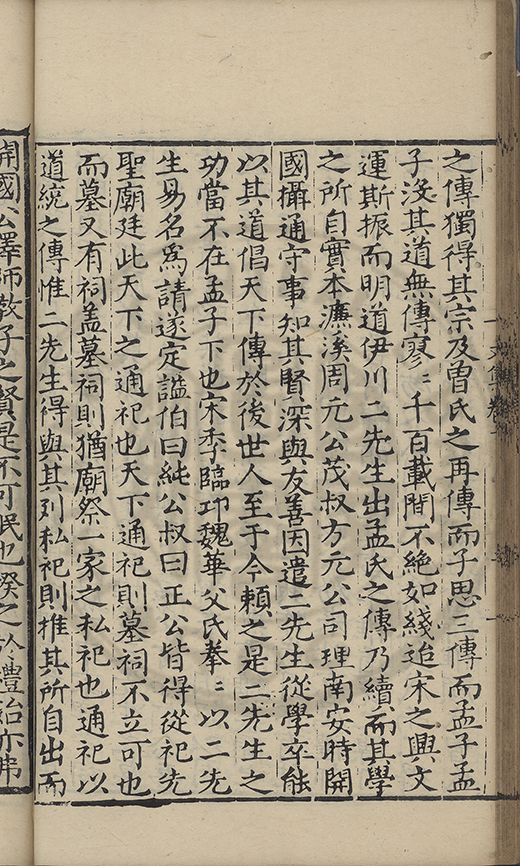 之傳獨得其宗及曾氏之再傳而子思三傳而孟子孟
子沒其道無傳寥〻千百載間不絕如綫迨宋之興文
運斯振而明道伊川二先生出孟氏之傳乃續而其學
之所自實本濂溪周元公茂叔方元公司理南安時開
國攝通守事知其賢深與友善因遣二先生從學卒能
以其道倡天下傳於後世人至于今賴之是二先生之
功當不在孟子下也宋季臨邛魏華父氏拳〻以二先
生易名為請遂定諡伯曰純公叔曰正公皆得從祀先
聖廟廷此天下之通祀也天下通祀則墓祠不立可也
而墓又有祠盖墓祠則猶廟祭一家之私祀也通祀以
道統之傳惟二先生得與其列私祀則推其所自出而
開國公擇師教子之賢是不可泯也揆之於禮治亦弗